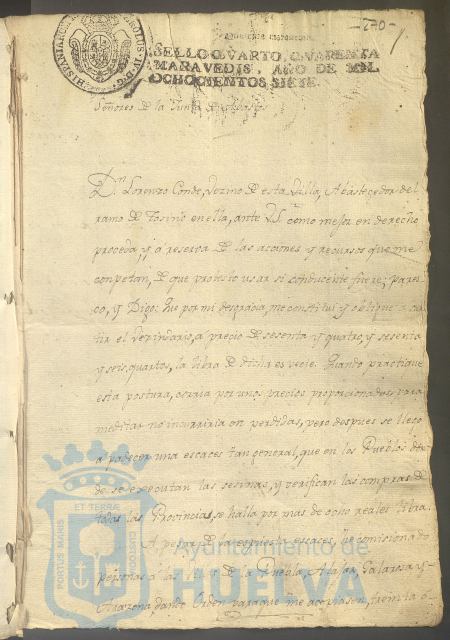 -270-
HISPANIARUM
SELLO QVARTO, QVARENTA
MARAVEDIS, AÑO DE MIL
OCHOCIENTOS SIETE.
Señores de la Junta de
Dn. Lorenzo Conde, vezino de esta Villa, Abastecedor del
ramo de Tosino en ella, ante VS. como mejor en derecho
proceda, y a reserva de las acciones y recursos que me
conpetan, de que protesto usar si conducente fuere; pares-
co, y Digo: Que por mi desgracia, me constitui y obligue a sur
tir el vezindario, a precio de sesenta y quatro, y sesenta
y seis quartos, la libra de dicha especie. Quando practique
esta postura, estava por unos precios proporcionados, para
meditar no incurriria en perdidas, pero despues se llegó
a padecer una escases tan general, que en los Pueblos don
de se executan las sesinas, y verifican las compras de
todas las Provincias, se halla por mas de ocho reales libra.
A pesar de la expuesta escases, he comisionado
Personas a las de la Puebla, Alajar, Galarosa y
Arazena, dando Orden para que me acopiasen, treinta ó
ET TERRÆ
PORTUS MARIS
CUSTODIA
Ayuntamiento de
HUELVA